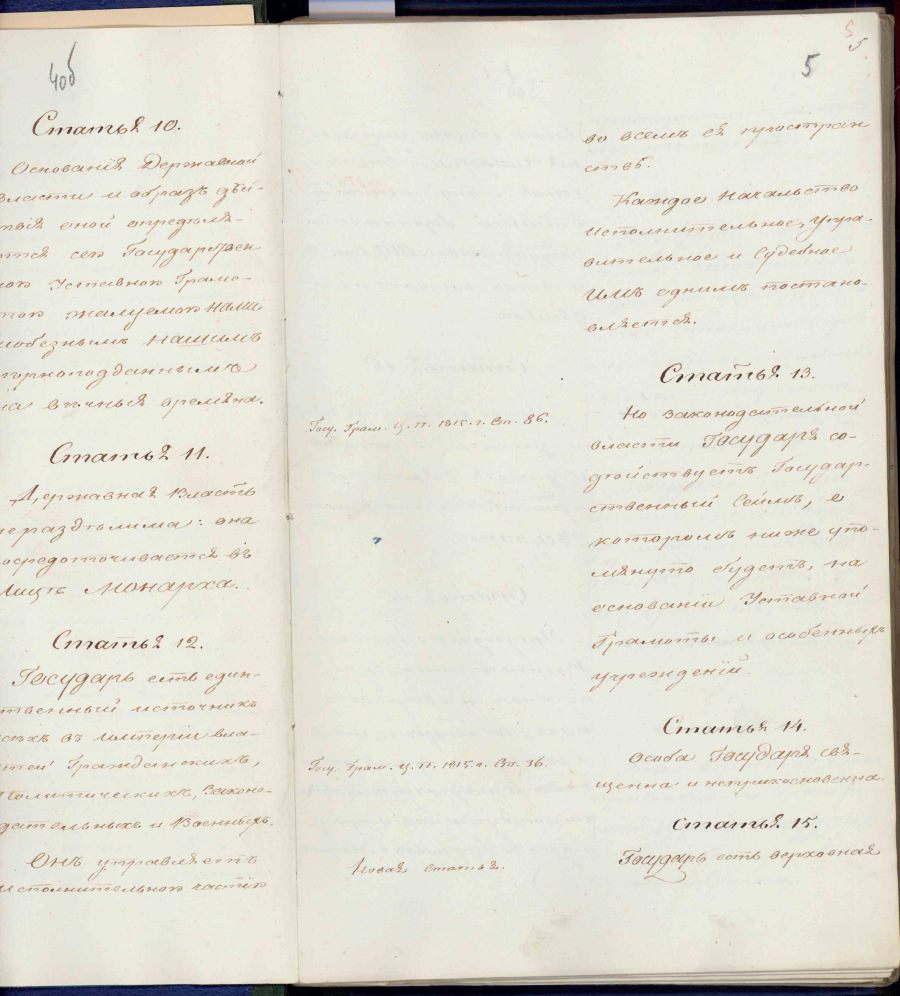 4об
Статья 10.
Основанія Державной
власти и образъ дѣй-
твія оной опредѣля-
ются сею Государствен-
ною Уставною Грамо-
тою жалуемою НАМИ
любезнымъ НАШИМЪ
вѣрноподданнымъ
на вѣчныя времена.
Статья 11.
Державная Власть
нераздѣлима: она
сосредоточивается въ
Лицѣ МОНАРХА.
Статья 12.
Государь есть един-
ственный источникъ
всѣхъ въ Имперіи вла-
стей Гражданскихъ,
Политическихъ, Законо-
дательныхъ и Военныхъ.
Онъ управляетъ
исполнительною частію
5
5
5
во всемъ ея простран
ствѣ.
Каждое Начальство
Исполнительное, Упра-
вительное и Судебное
Имъ однимъ постано-
вляется.
Статья 13.
Гос. Грам. Ц. П. 1815. г. Ст. 86.
Но законодательной
власти Государя со-
дѣйствуетъ Государ-
ственный Сеймъ, о
которомъ ниже упо-
мянуто будетъ, на
основаніи Уставной
Грамоты и особенныхъ
учрежденій.
Статья 14.
Гос. Грам. Ц. П. 1815. г. Ст. 36.
Особа Государя свя-
щенна и неприкосновенна.
Статья 15.
Новая статья.
Государь есть верховная